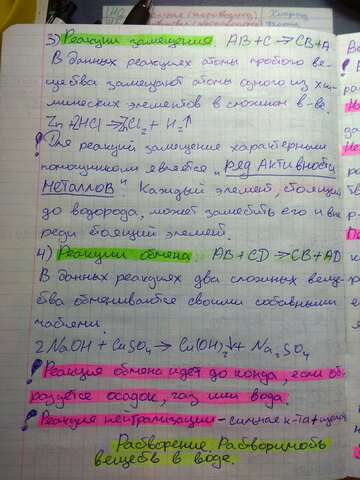 3) Реакции замещения. AB+C → CB+A
В данных реакциях атомы простого ве-
щества замещают атомы одного из хи-
мических элементов в сложном в-ве.
Zn + 2HCl → ZnCl₂ + H₂↑
! Для реакций замещение характерным
помощником является „ряд Активности
металлов". Каждый элемент, стоящий
до водорода, может заместить его и впе
реди стоящий элемент.
4) Реакции обмена. AB + CD → CB + AD
В данных реакциях два сложных веще-
ства обмениваются своими составными
частями.
2NaOH + CuSO₄ → Cu(OH)₂↓ + Na₂SO₄
! Реакция обмена идёт до конца, если об-
разуется осадок, газ или вода.
! Реакция нейтрализации - сильная к-та +
Растворение Растворимость
веществ в воде.